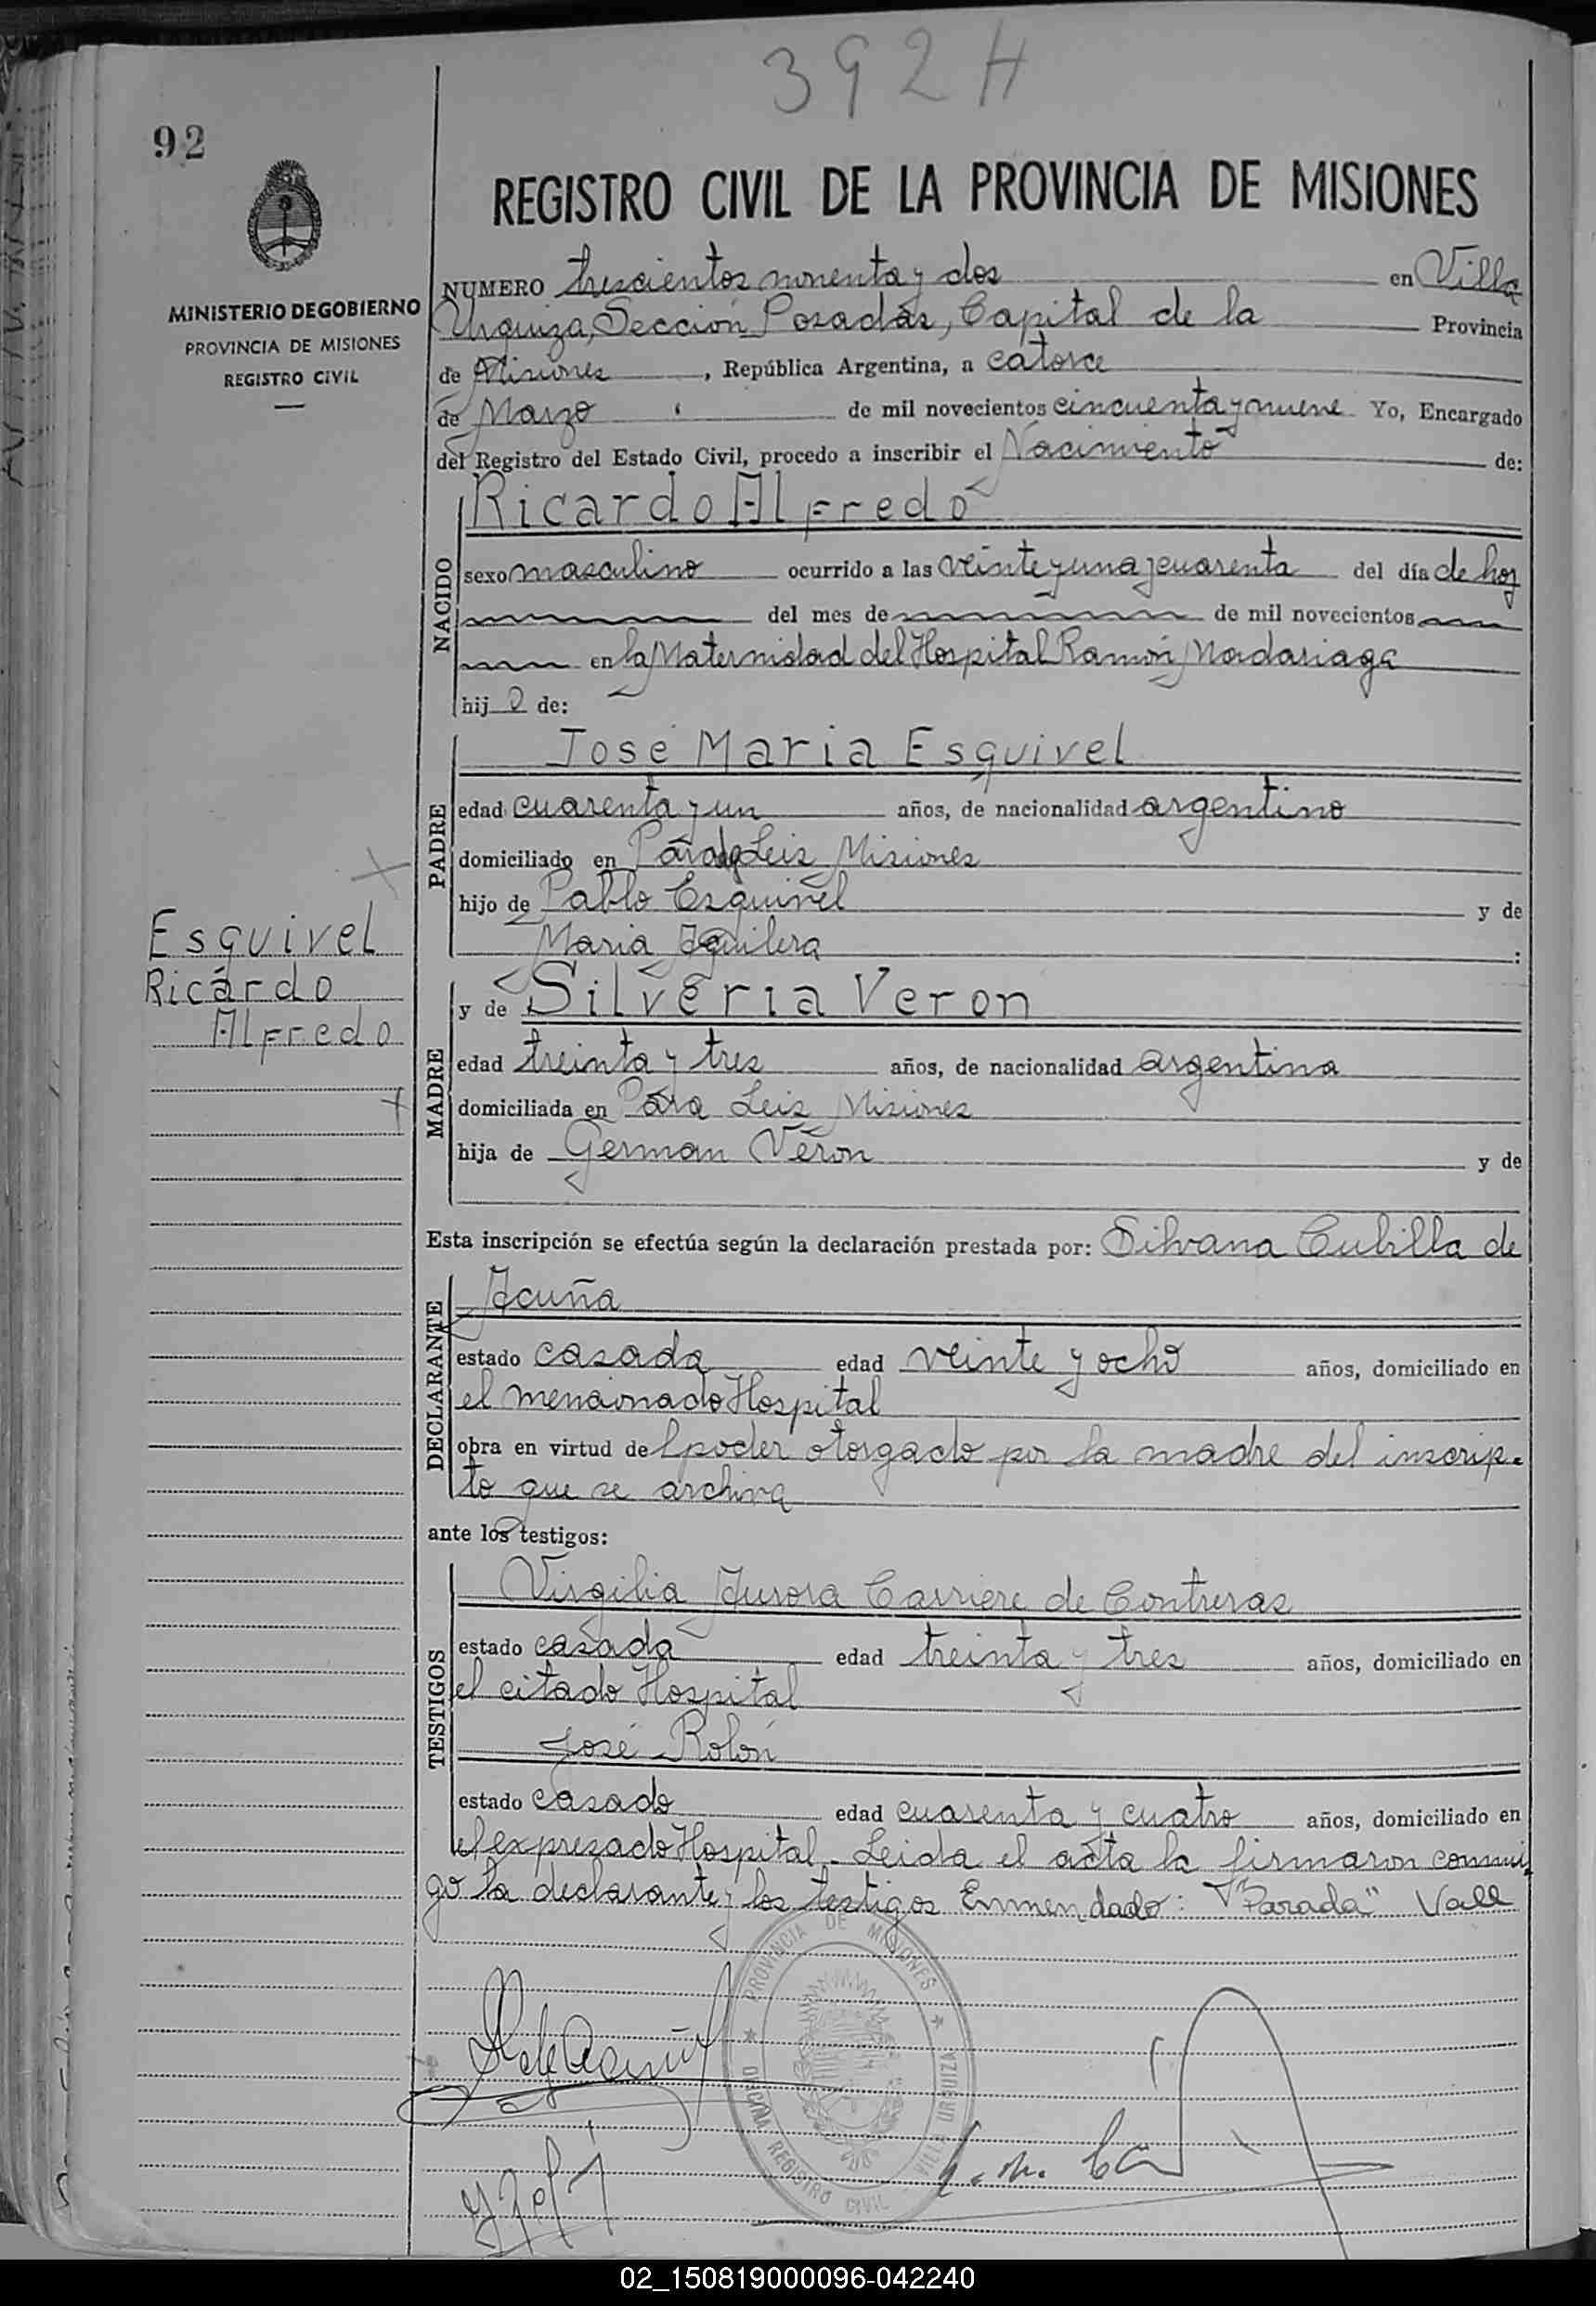 392 H
92
REGISTRO CIVIL DE LA PROVINCIA DE MISIONES
MINISTERIO DE GOBIERNO
PROVINCIA DE MISIONES
REGISTRO CIVIL
NUMERO trescientos noventa y dos en Villa
Urquiza, Sección Posadas, Capital de la Provincia
de Misiones, República Argentina, a catorce
de Marzo de mil novecientos cincuenta y nueve Yo, Encargado
del Registro del Estado Civil, procedo a inscribir el Nacimiento de:
NACIDO
Ricardo Alfredo
sexo masculino ocurrido a las veinte y una y cuarenta del día de hoy
del mes de de mil novecientos
en la Maternidad del Hospital Ramón Madariaga
hij o de:
PADRE
José Maria Esquivel
edad cuarenta y un años, de nacionalidad argentino
domiciliado en Parada Leis Misiones
hijo de Pablo Esquivel y de
Maria Aguilera :
Esquivel
Ricardo
Alfredo
MADRE
y de Silveria Veron
edad treinta y tres años, de nacionalidad argentina
domiciliada en Para Leis Misiones
hija de German Verón y de
Esta inscripción se efectúa según la declaración prestada por: Silvana Cubilla de
DECLARANTE
Acuña
estado casada edad veinte y ocho años, domiciliado en
el mencionado Hospital
obra en virtud del poder otorgado por la madre del inscrip-
to que se archiva
ante los testigos:
TESTIGOS
Virgilia Aurora Carriere de Contreras
estado casada edad treinta y tres años, domiciliado en
el citado Hospital
José Rolón
estado casado edad cuarenta y cuatro años, domiciliado en
el expresado Hospital. Leida el acta la firmaron conmi-
go la declarante y los testigos Enmendado: "Parada" Vale
PROVINCIA DE MISIONES
OFICINA REGISTRO CIVIL VILLA URQUIZA
S. de Acuña
02_150819000096-042240